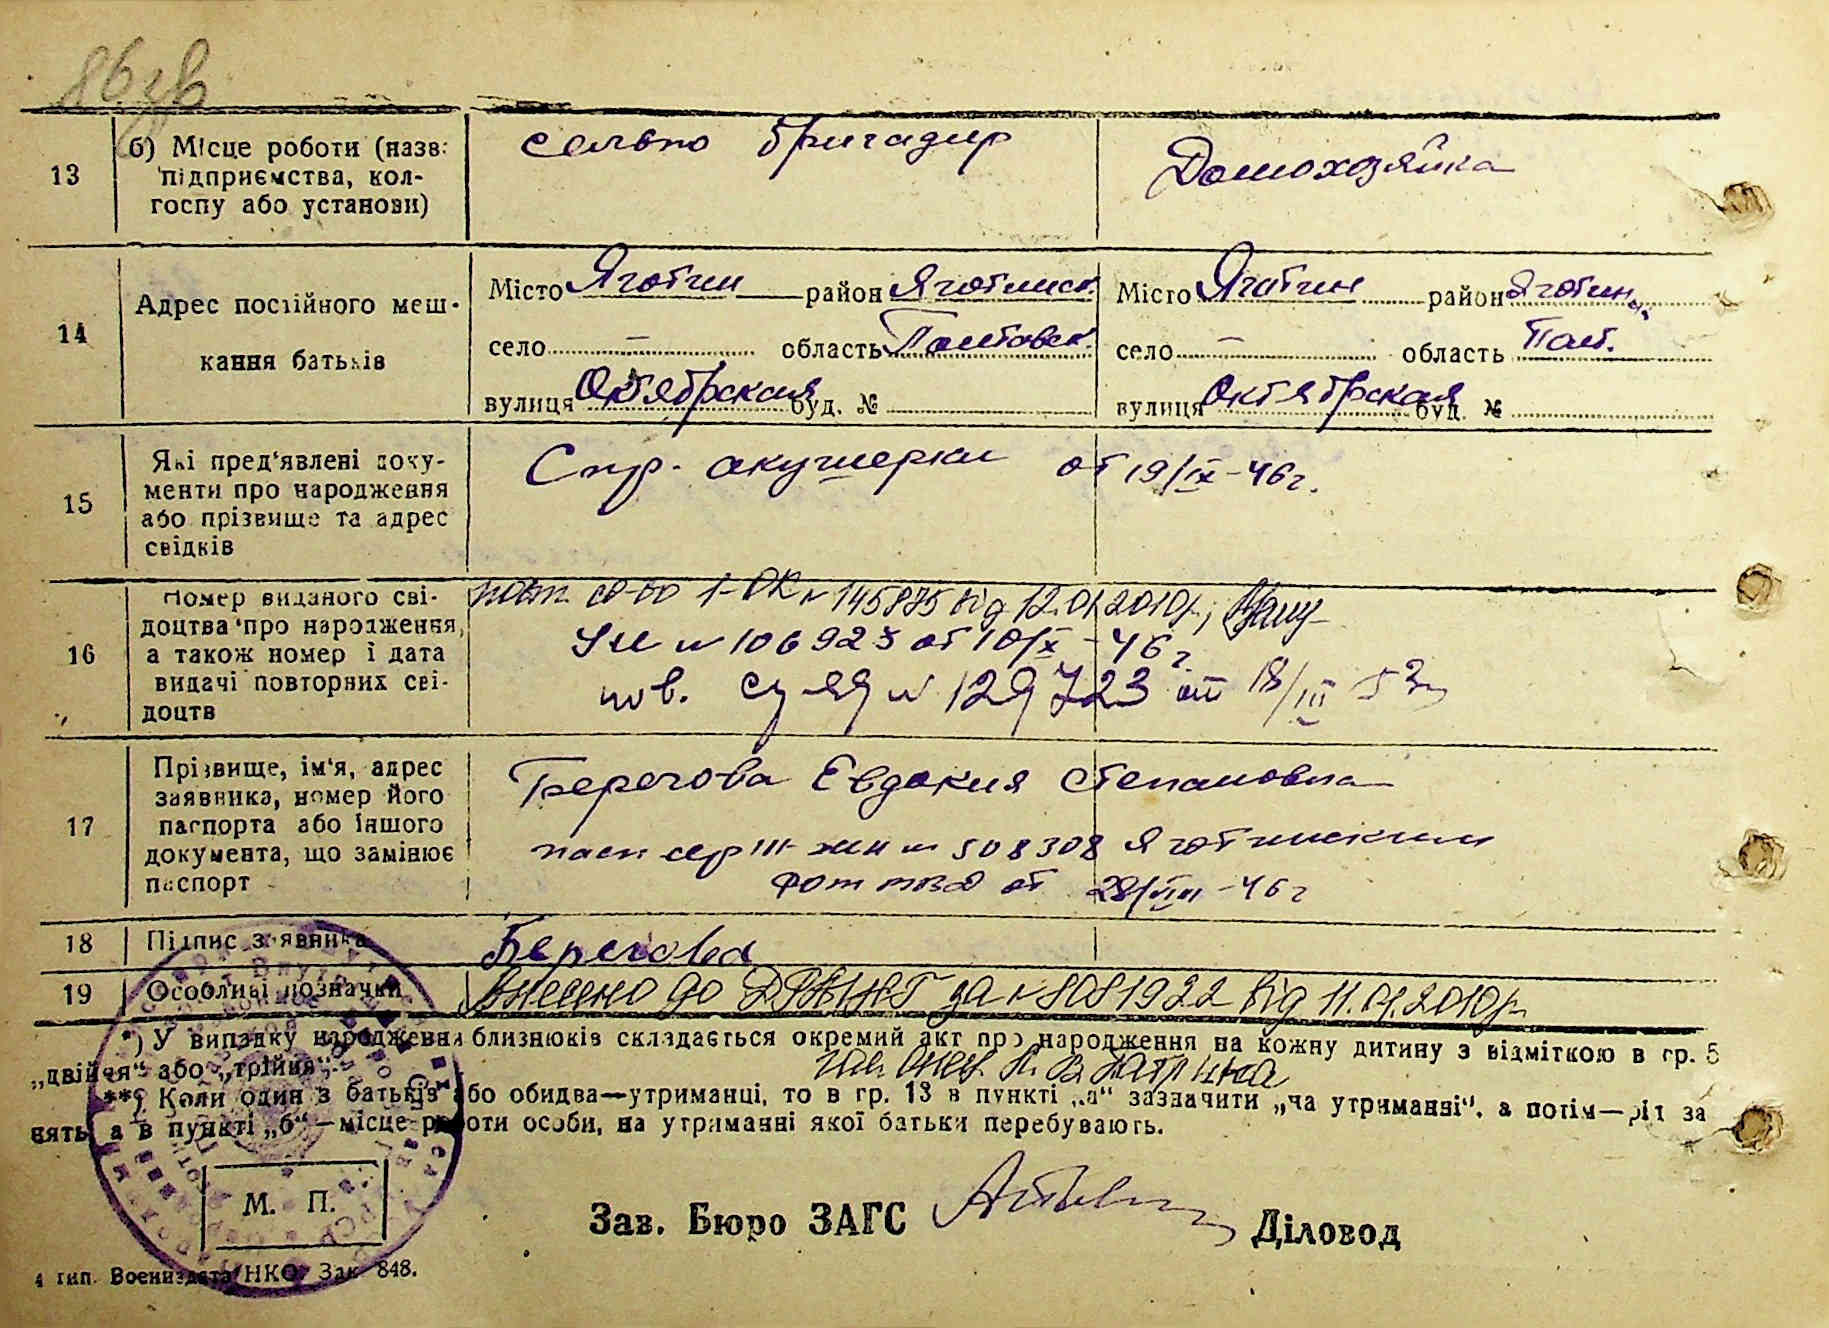 86 зв
13
б) Місце роботи (назва
підприємства, кол-
госпу або установи)
сельпо бригадир
Домохозяйка
14
Адрес постійного меш-
кання батьків
Місто Яготин район Яготинск.
село — область Полтавск.
вулиця Октябрская буд. №
Місто Яготин район Яготинский
село — область Полт.
вулиця Октябрская буд. №
15
Які пред'явлені доку-
менти про народження
або прізвище та адрес
свідків
Спр. акушерки от 19/IX-46г.
16
Номер виданого сві-
доцтва про народження,
а також номер і дата
видачі повторних сві-
доцтв
повт. св-во 1-ОК № 145875 від 12.01.2010р.,
№ 106923 от 10/X-46г.
пов. № 129723 от 18/III 53г
17
Прізвище, ім'я, адрес
заявника, номер його
паспорта або іншого
документа, що замінює
паспорт
Береговая Евдокия Степановна
пасп сер III № 508308 Яготинским
от 28/VIII-46г
18
Підпис заявника
Берегова
19
Особливі позначки
Внесено до за № 8081922 від 11.01.2010р.
*) У випадку народження близнюків складається окремий акт про народження на кожну дитину з відміткою в гр. 5
„двійня“ або „трійня“.
**) Коли один з батьків або обидва—утриманці, то в гр. 13 в пункті „а“ зазначити „на утриманні“, а потім—рід за
нять, а в пункті „б“—місце роботи особи, на утриманні якої батьки перебувають.
М. П.
Зав. Бюро ЗАГС
Діловод
4 тип. Воениздата НКО. Зак. 848.